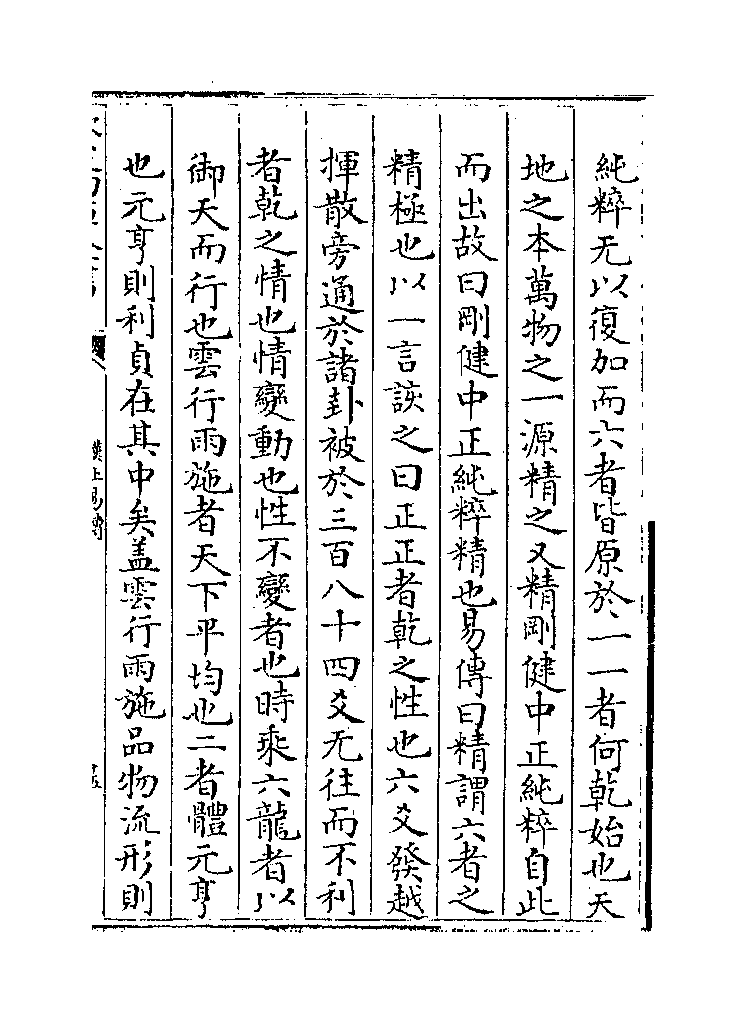 純粹无以復加而六者皆原於一一者何乾始也天
地之本萬物之一源精之又精剛健中正純粹自此
而出故曰剛健中正純粹精也易傳曰精謂六者之
精極也以一言該之曰正正者乾之性也六爻發越
揮散旁通於諸卦被於三百八十四爻无往而不利
者乾之情也情變動也性不變者也時乘六龍者以
御天而行也雲行雨施者天下平均也二者體元亨
也元亨則利貞在其中矣盖雲行雨施品物流形則
漢上易傳